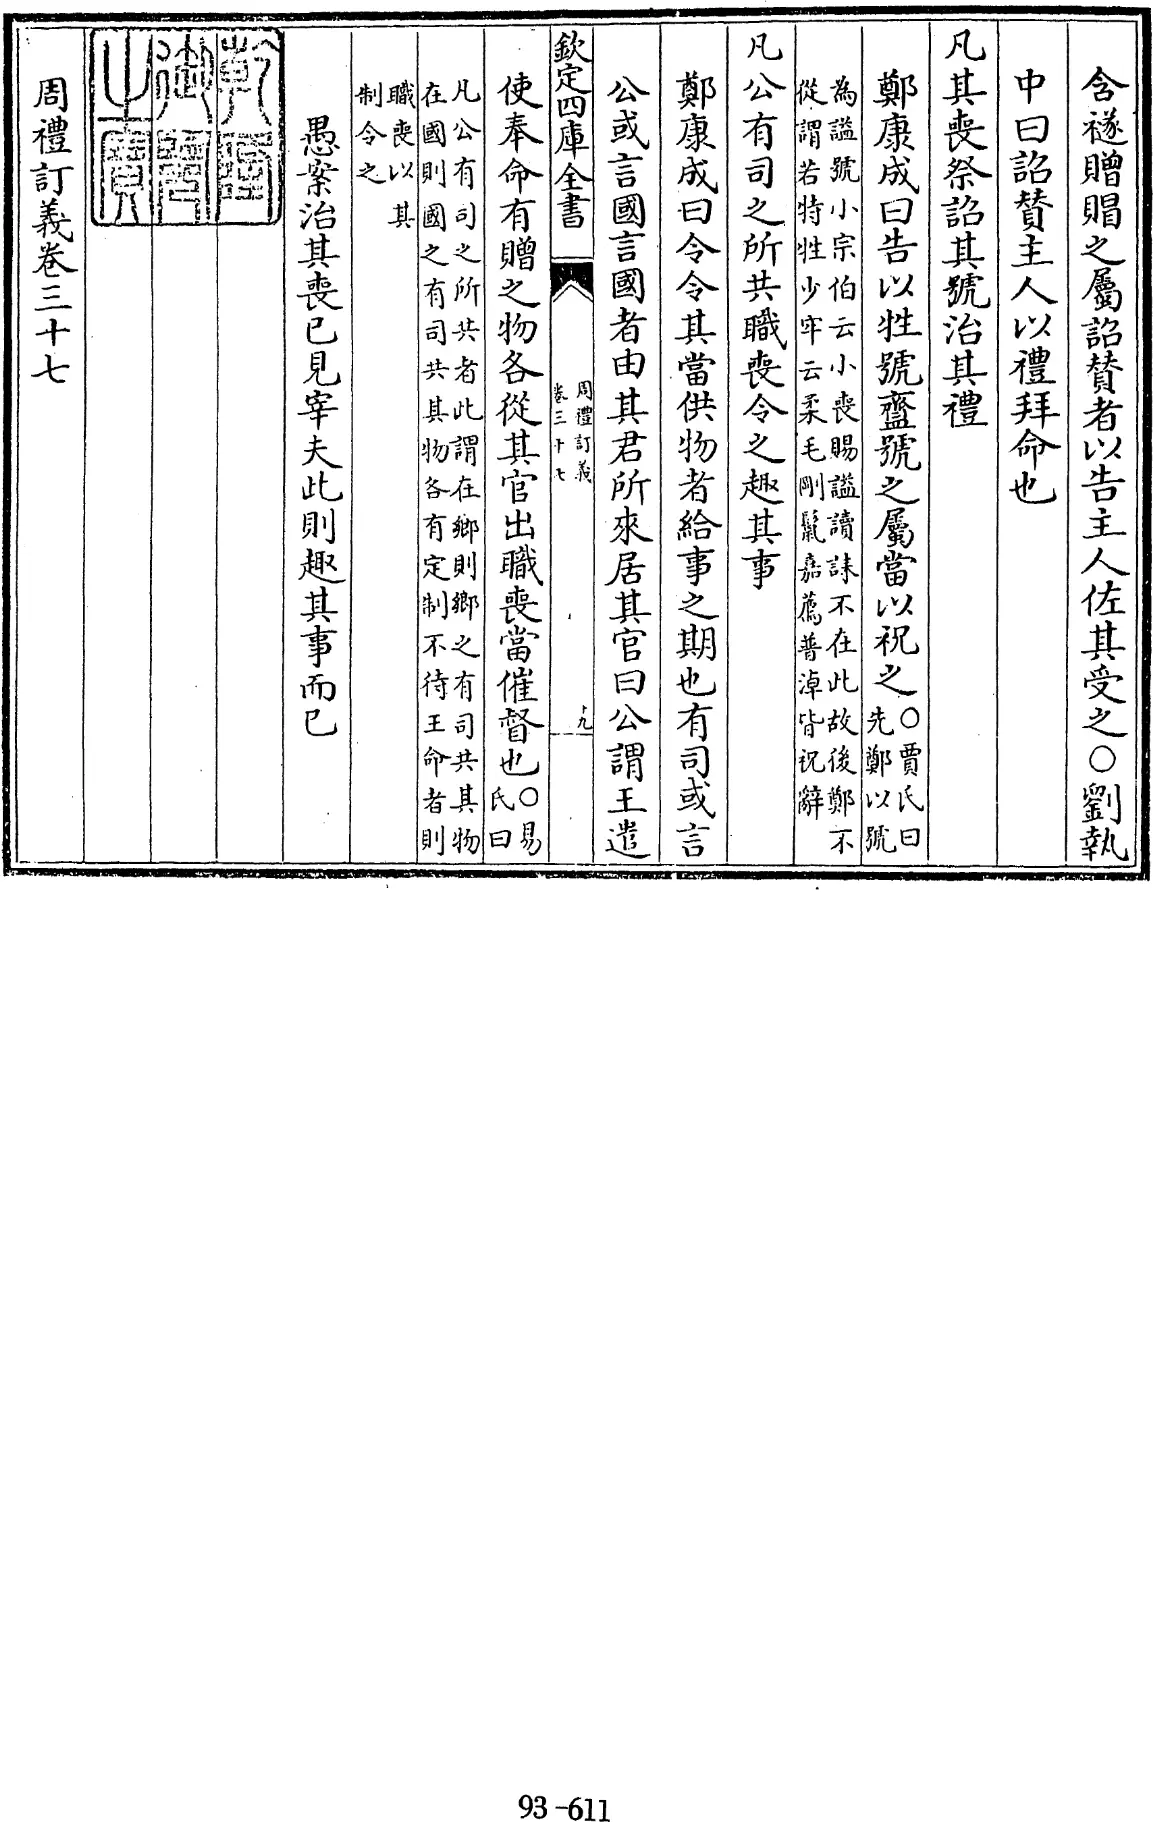 含禭贈賵之屬詔贊者以告主人佐其受之○劉執
中曰詔贊主人以禮拜命也
凡其喪祭詔其號治其禮
鄭康成曰告以牲號齍號之屬當以祝之○賈氏曰先鄭以號
為諡號小宗伯云小喪賜諡讀誄不在此故後鄭不
從謂若特牲少牢云柔毛剛鬣嘉薦普淖皆祝辭
凡公有司之所共職喪令之趣其事
鄭康成曰令令其當供物者給事之期也有司或言
公或言國言國者由其君所來居其官曰公謂王遣
欽定四庫全書
周禮訂義
卷三十七
十九
使奉命有贈之物各從其官出職喪當催督也○易氏曰
凡公有司之所共者此謂在鄉則鄉之有司共其物
在國則國之有司共其物各有定制不待王命者則
職喪以其
制令之
愚案治其喪已見宰夫此則趣其事而已
乾隆
御覽
之寶
周禮訂義卷三十七
93-611